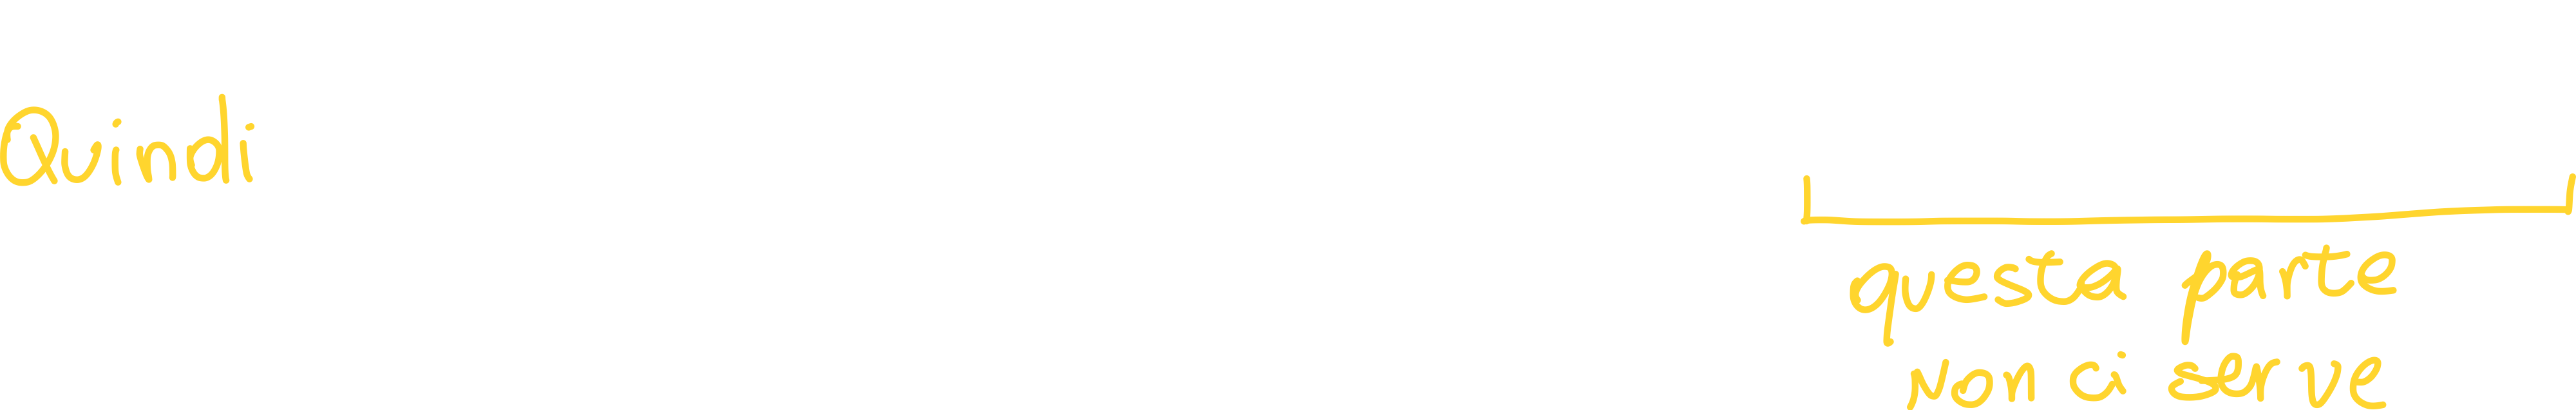 Quindi
questa parte
non ci serve